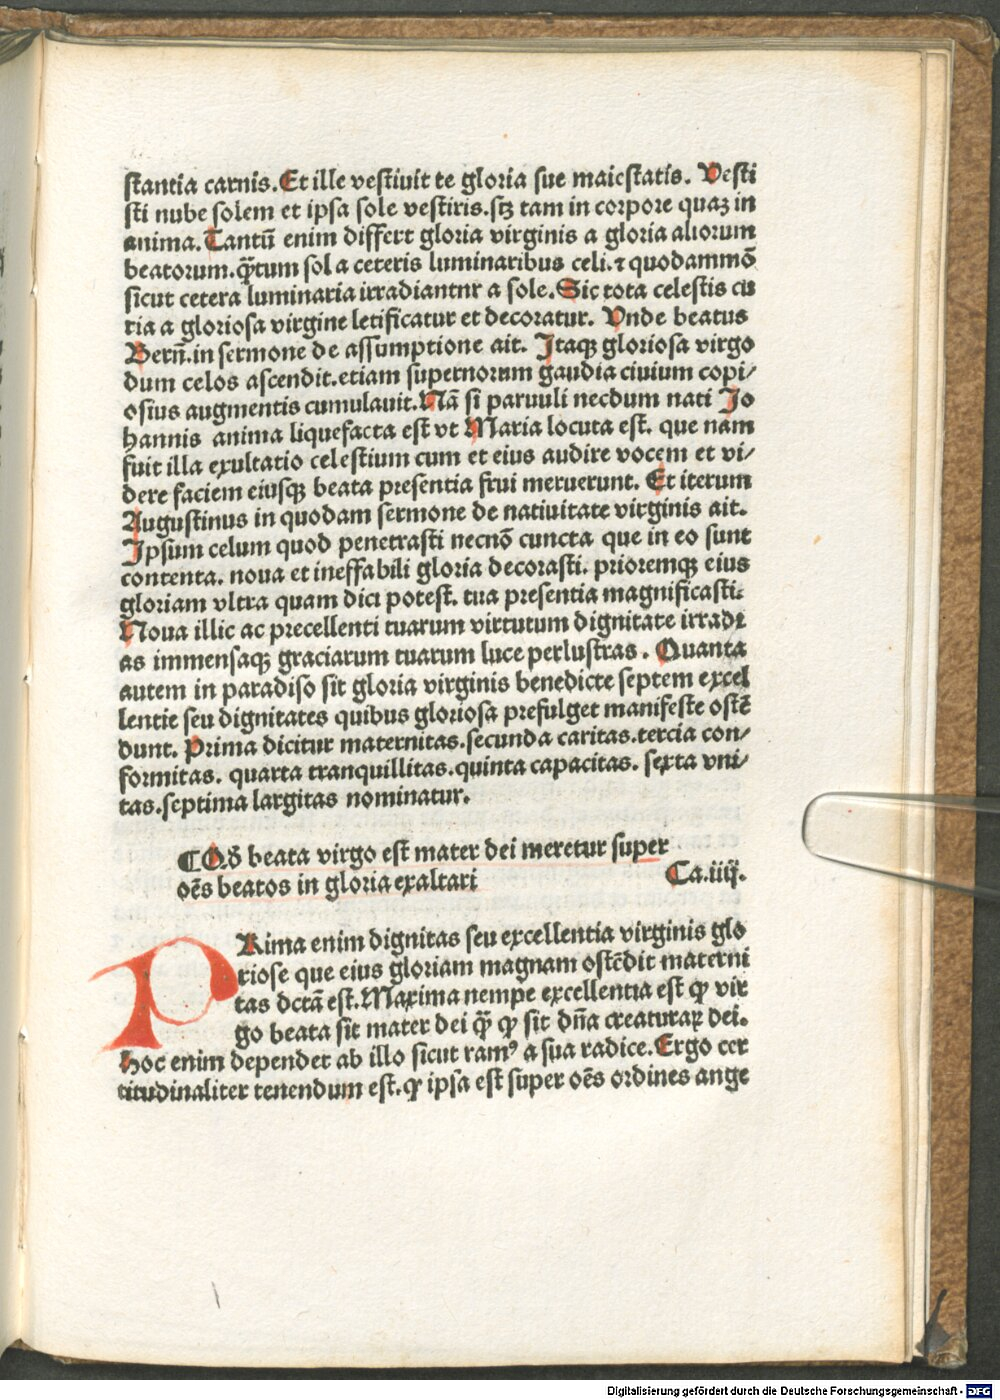 stantia carnis. Et ille vestiuit te gloria sue maiestatis. Vesti
sti nube solem et ipsa sole vestiris. stꝫ tam in corpore quaꝫ in
anima. Tantū enim differt gloria virginis a gloria aliorum
beatorum. qͣ̄tum sol a ceteris luminaribus celi. ⁊ quodammō
sicut cetera luminaria irradiantnr a sole. Sic tota celestis cu
ria a gloriosa virgine letificatur et decoratur. Vnde beatus
Bern̄. in sermone de assumptione ait. Itaqꝫ gloriosa virgo
dum celos ascendit. etiam supernorum gaudia ciuium copi/
osius augmentis cumulauit. Nā si paruuli necdum nati Jo
hannis anima liquefacta est vt Maria locuta est. que nam
fuit illa exultatio celestium cum et eius audire vocem et vi/
dere faciem eiusqꝫ beata presentia frui meruerunt. Et iterum
Augustinus in quodam sermone de natiuitate virginis ait.
Ipsum celum quod penetrasti necnō cuncta que in eo sunt
contenta. noua et ineffabili gloria decorasti. prioremqꝫ eius
gloriam vltra quam dici potest. tua presentia magnificasti.
Noua illic ac precellenti tuarum virtutum dignitate irradi
as immensaqꝫ graciarum tuarum luce perlustras. Quanta
autem in paradiso sit gloria virginis benedicte septem excel
lentie seu dignitates quibus gloriosa prefulget manifeste ostē
dunt. Prima dicitur maternitas. secunda caritas. tercia con/
formitas. quarta tranquillitas. quinta capacitas. sexta vni/
tas. septima largitas nominatur.
¶ Qꝺ beata virgo est mater dei meretur super
oēs beatos in gloria exaltari Ca. iiij.
PRima enim dignitas seu excellentia virginis glo
riose que eius gloriam magnam ostēdit materni
tas dctā est. Maxima nempe excellentia est ꝙ vir
go beata sit mater dei qͣ̄ ꝙ sit dn̄a creaturaꝝ dei.
hoc enim dependet ab illo sicut ramꝰ a sua radice. Ergo cer
titudinaliter tenendum est. ꝙ ipsa est super oēs ordines ange
Digitalisierung gefördert durch die Deutsche Forschungsgemeinschaft - DFG